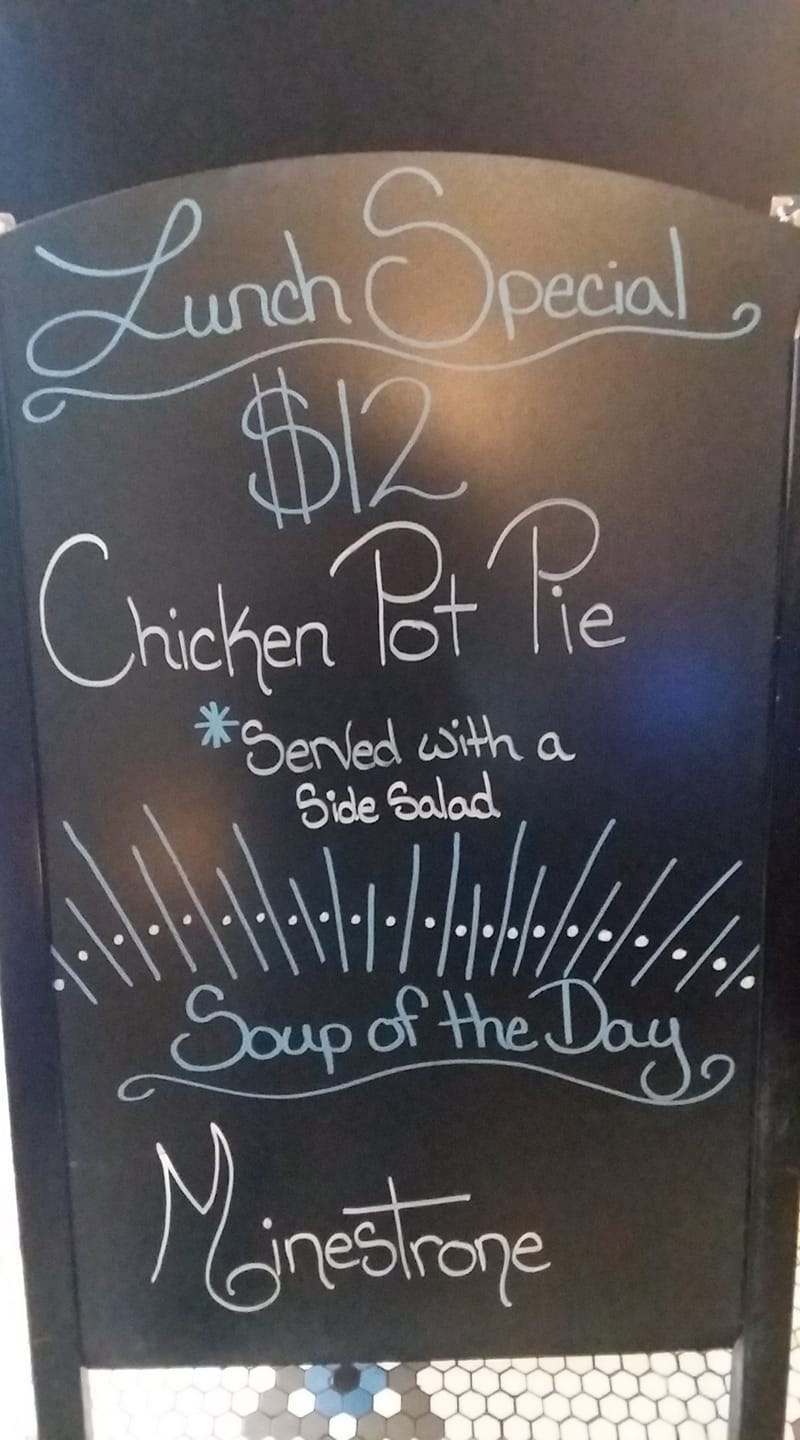 Lunch Special
$12
Chicken Pot Pie
*Served with a
Side Salad
Soup of the Day
Minestrone